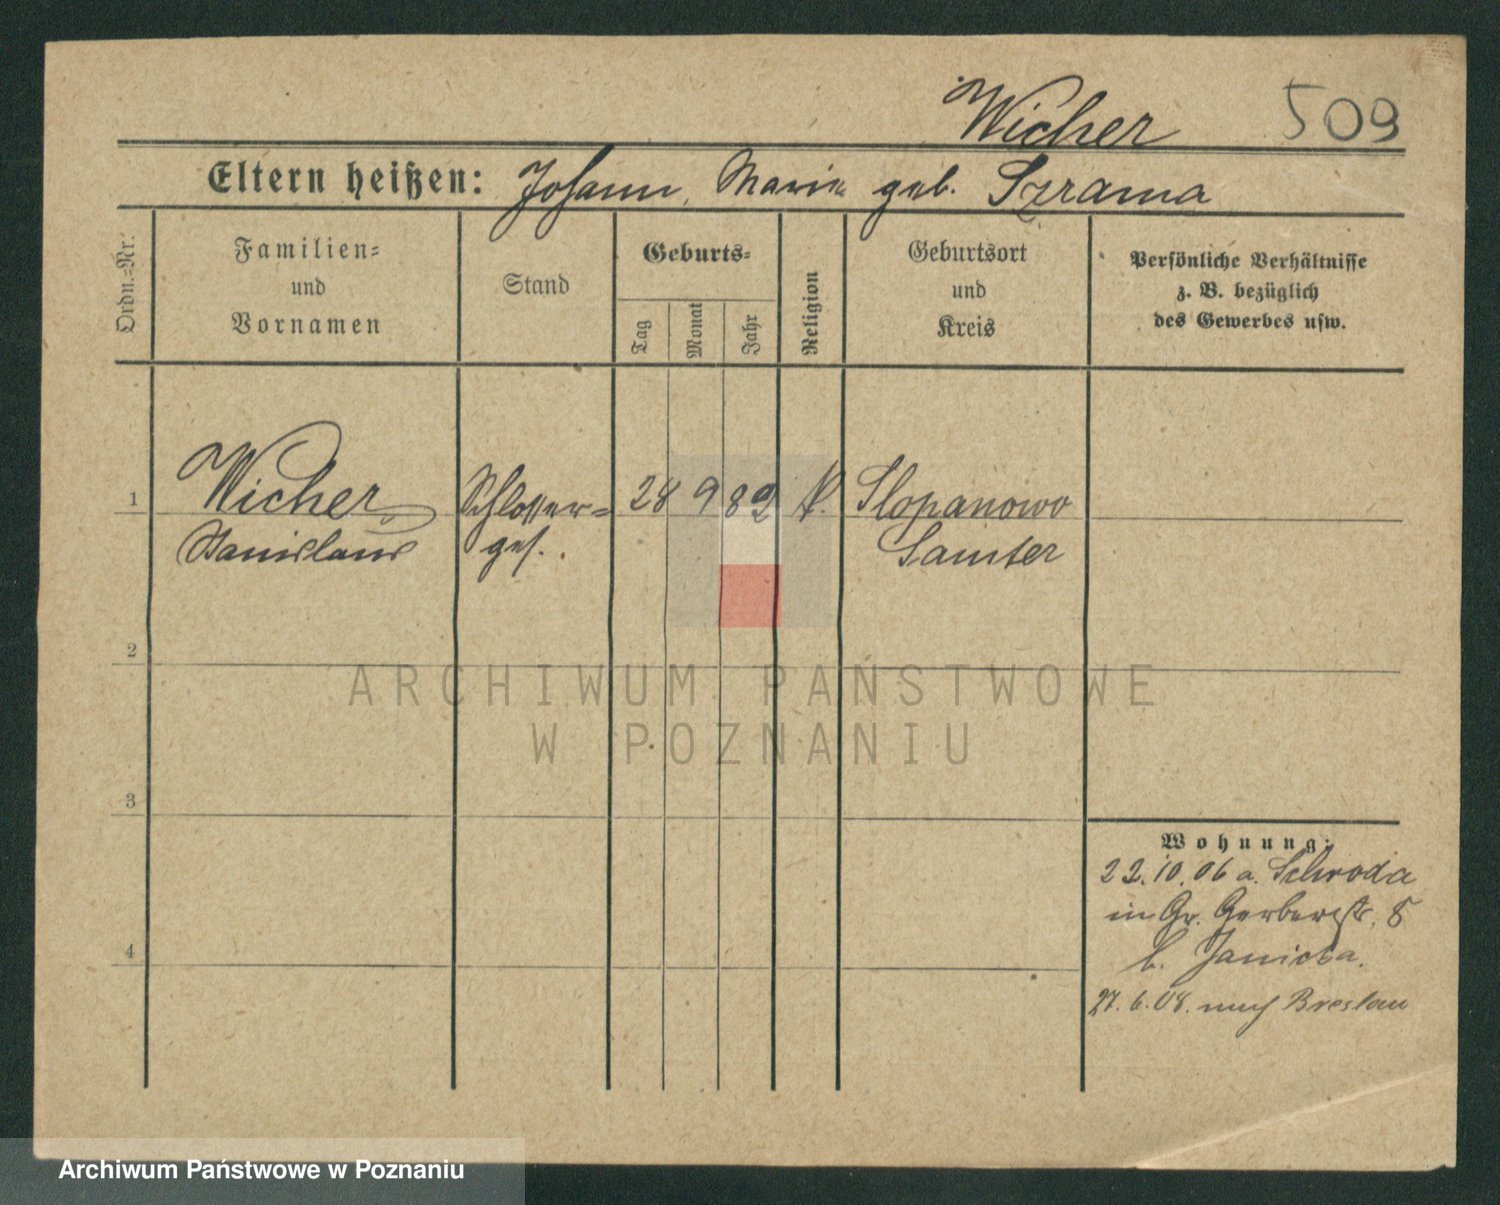 Wicher 509
Eltern heißen: Johann, Maria geb. Szrama
Ordn.-Nr.
Familien-
und
Vornamen
Stand
Geburts-
Tag
Monat
Jahr
Religion
Geburtsort
und
Kreis
Persönliche Verhältnisse
z. B. bezüglich
des Gewerbes usw.
1 Wicher Schlosser- 28 9 82 k. Slopanowo
Stanislaus ges. Samter
2
ARCHIWUM PAŃSTWOWE
W POZNANIU
3
Wohnung:
22.10.06 a. Schroda
in Gr. Gerberstr. 8
b. Janicka.
4
27.6.08. nach Breslau
Archiwum Państwowe w Poznaniu